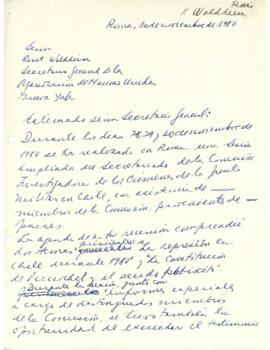 Roma
K Waldheim
Roma, 30 de noviembre de 1980
Señor
Kurt Waldheim
Secretario General de la
Organización de Naciones Unidas
Nueva York
Estimado señor Secretario General:
Durante los días 28, 29 y 30 de noviembre de
1980 se ha realizado en Roma una Sesión
ampliada del Secretariado de la Comisión
Investigadora de los Crímenes de la Junta
Militar en Chile, con asistencia de ——
miembros de la Comisión, provenientes de —
países.
La agenda de esta reunión comprendió
dos temas principales: La represión en
Chile durante 1980 y "La Constitución
de Pinochet y el pseudo plebiscito".
Durante la sesión, junto con
informes especiales
a cargo de distinguidos miembros
de la Comisión, se tuvo también la
oportunidad de escuchar el testimonio